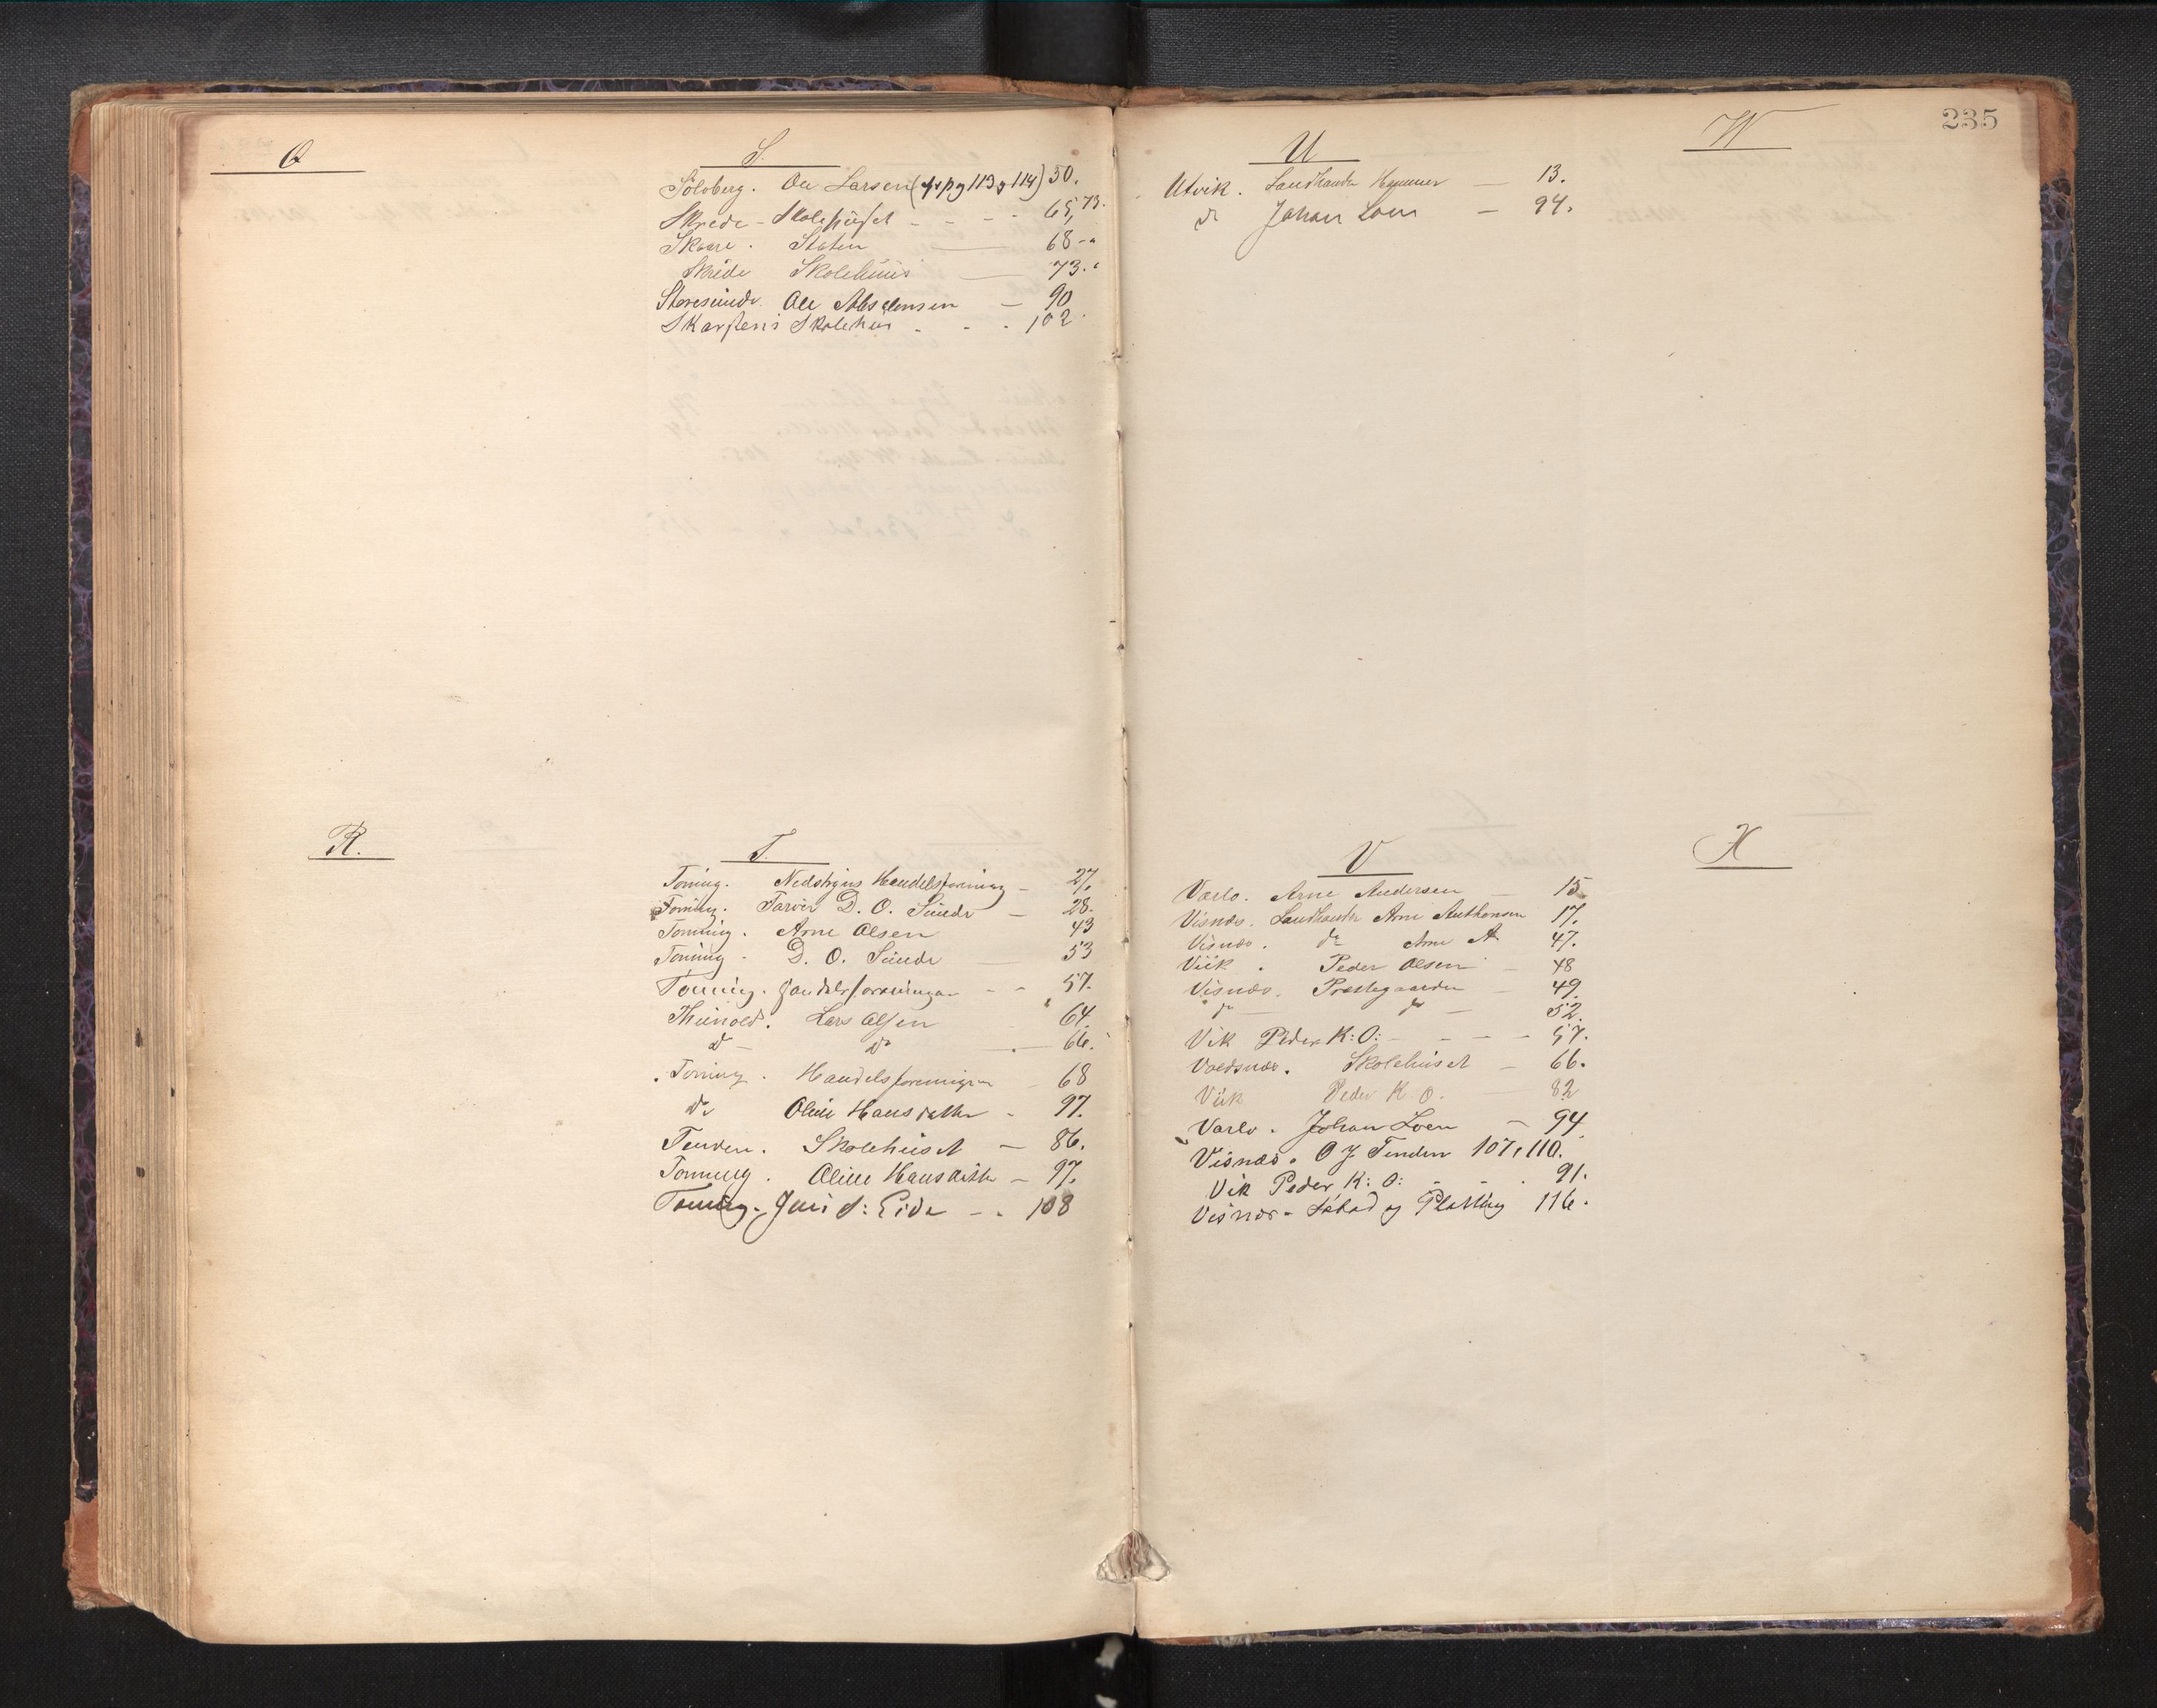 Q
S.
Sølvberg. Ole Larsen (cfr pg 113 og 114) 50.
Skrede - Skolehuset - - - - 65, 73.
Skaare. Staten — 68 - "
Skrede Skolehuus — 73. "
Storesunde. Ole Absalonsen — 90
Skarstens Skolehus . - . 102
R.
T.
Toning. Nedstryns Handelsforening — 27.
Toning. Farver D. O. Sunde — 28.
Tonning. Arne Olsen 43
Toning. D. O. Sunde — 53
Tonning. Handelsforeningen - - 57.
Lars Olsen 64
do — do — 66.
Toning. Handelsforeningen — 68
do Oline Hansdatter - 97.
Tenden. Skolehuset — 86.
Tonning. Oline Hansdatter — 97.
Toning. S: Eide - - 108
235
U
Utvik. Landhandler Hammer — 13.
do Johan Loen — 94.
W
V
Varlo. Arne Andersen — 15
Visnæs. Landhandler Arne Anthonsen 17.
Visnæs. do Arne A 47.
Viik. Peder Olsen — 48
Visnæs. Præstegaarden — 49.
do — do — 52.
Vik Peder K: O: - - - - 57.
Voldsnæs. Skolehuset — 66.
Viik Peder K O. — 82
Varlo. Johan Loen — 94
Visnæs. O J Tenden 107, 110.
Vik Peder K: O: - - . 91.
Visnæs - Søbod og Platting 116.
X